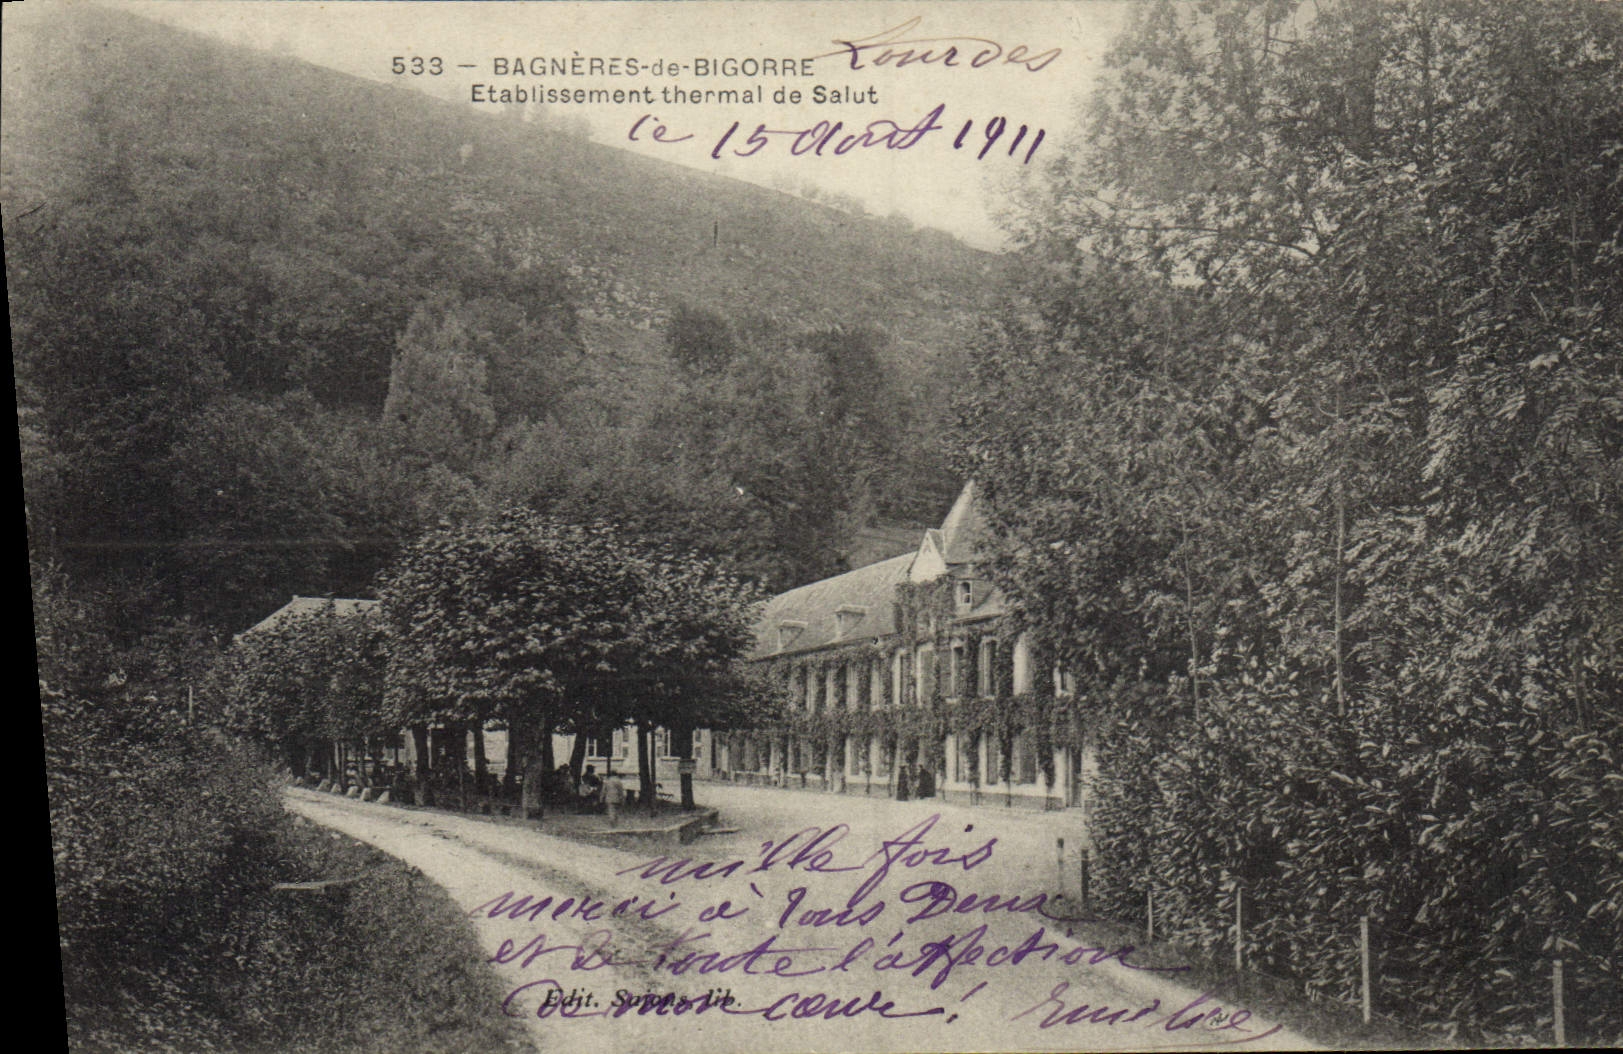 533 - BAGNÈRES-de-BIGORRE Lourdes
Etablissement thermal de Salut
le 15 Août 1911
mille fois
merci à tous Deux
et de toute l'affection
De mon cœur!
Edit. lib.